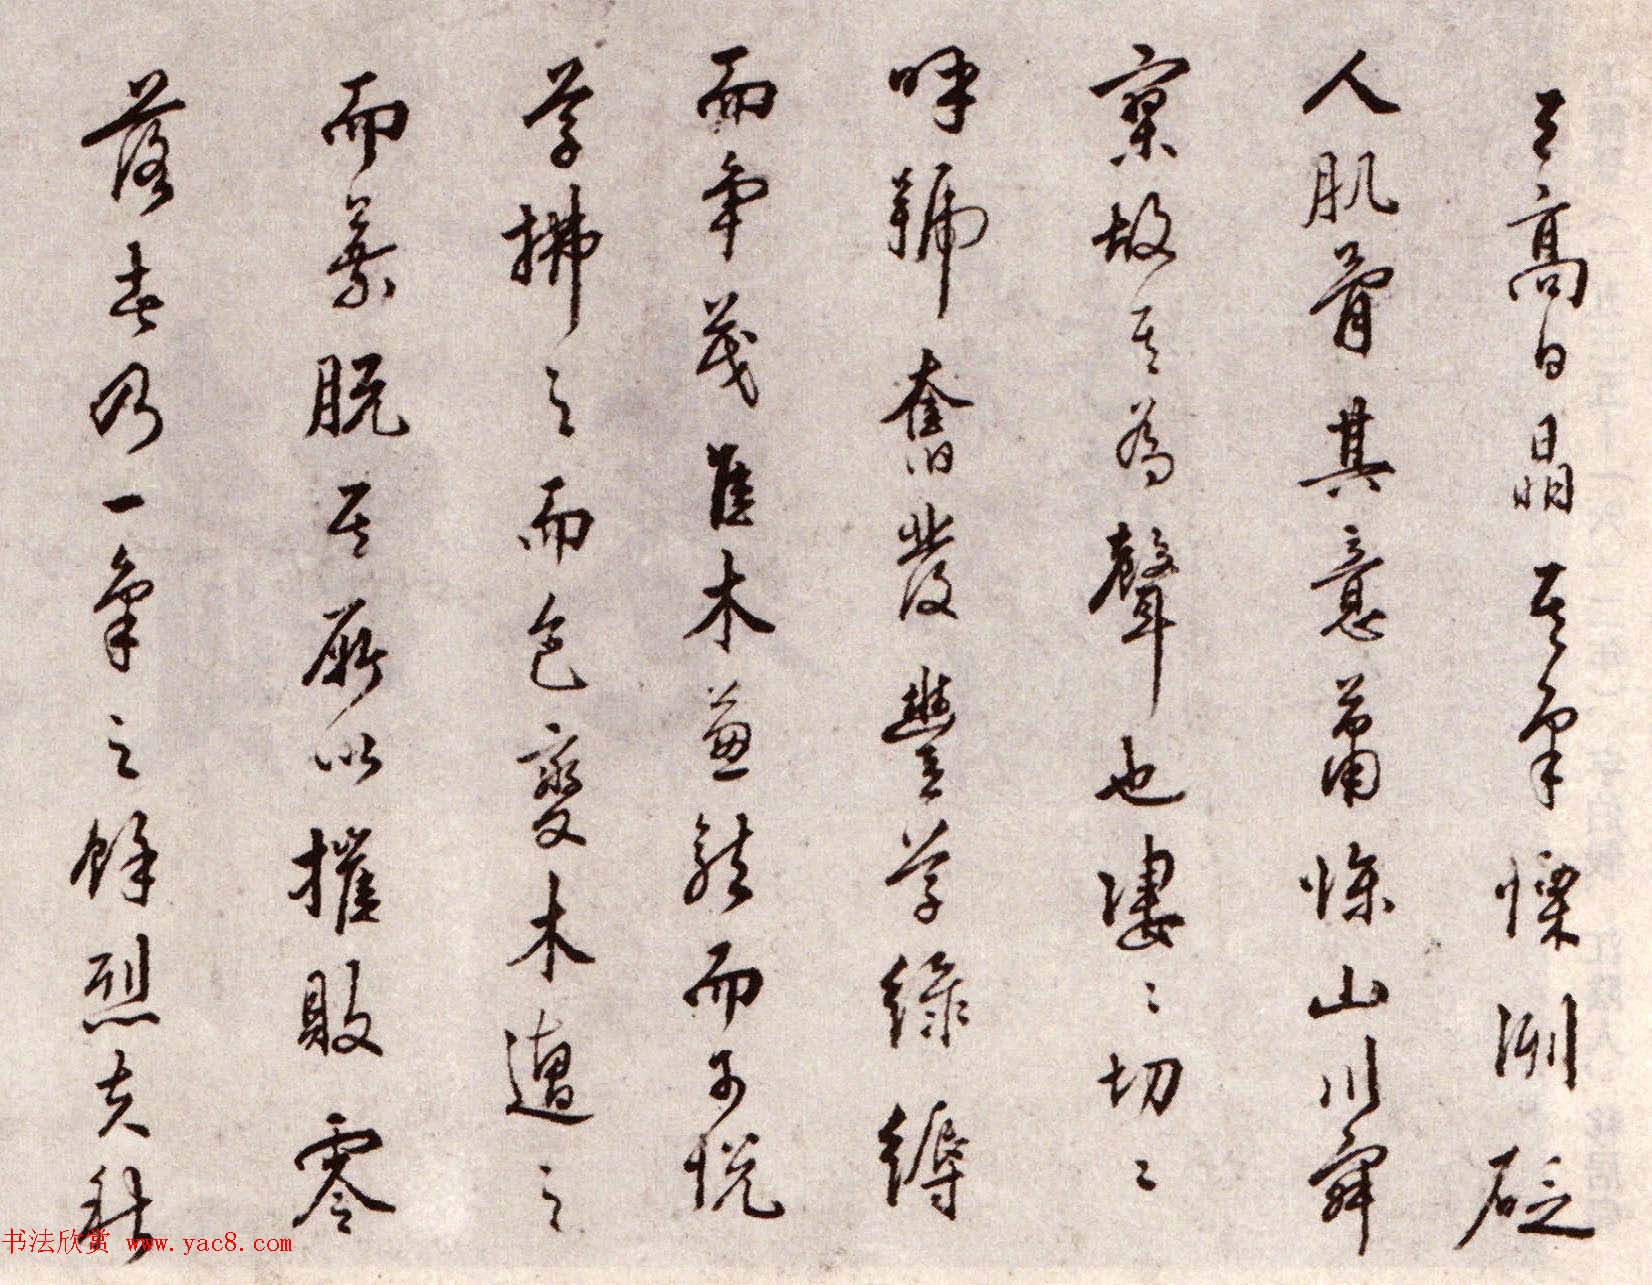 天高日晶其氣慄洌砭
人肌骨其意蕭條山川寂
寥故其為聲也淒〻切〻
呼號奮發豐草綠縟
而爭茂佳木蔥蘢而可悅
草拂之而色變木遭之
而葉脫其所以摧敗零
落者乃一氣之餘烈夫秋
书法欣赏 www.yac8.com